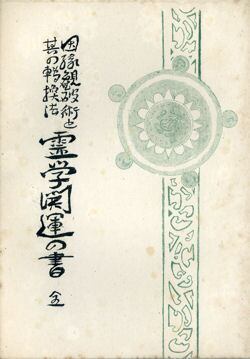 因縁観破術と
其の轉換法
霊学開運の書 全